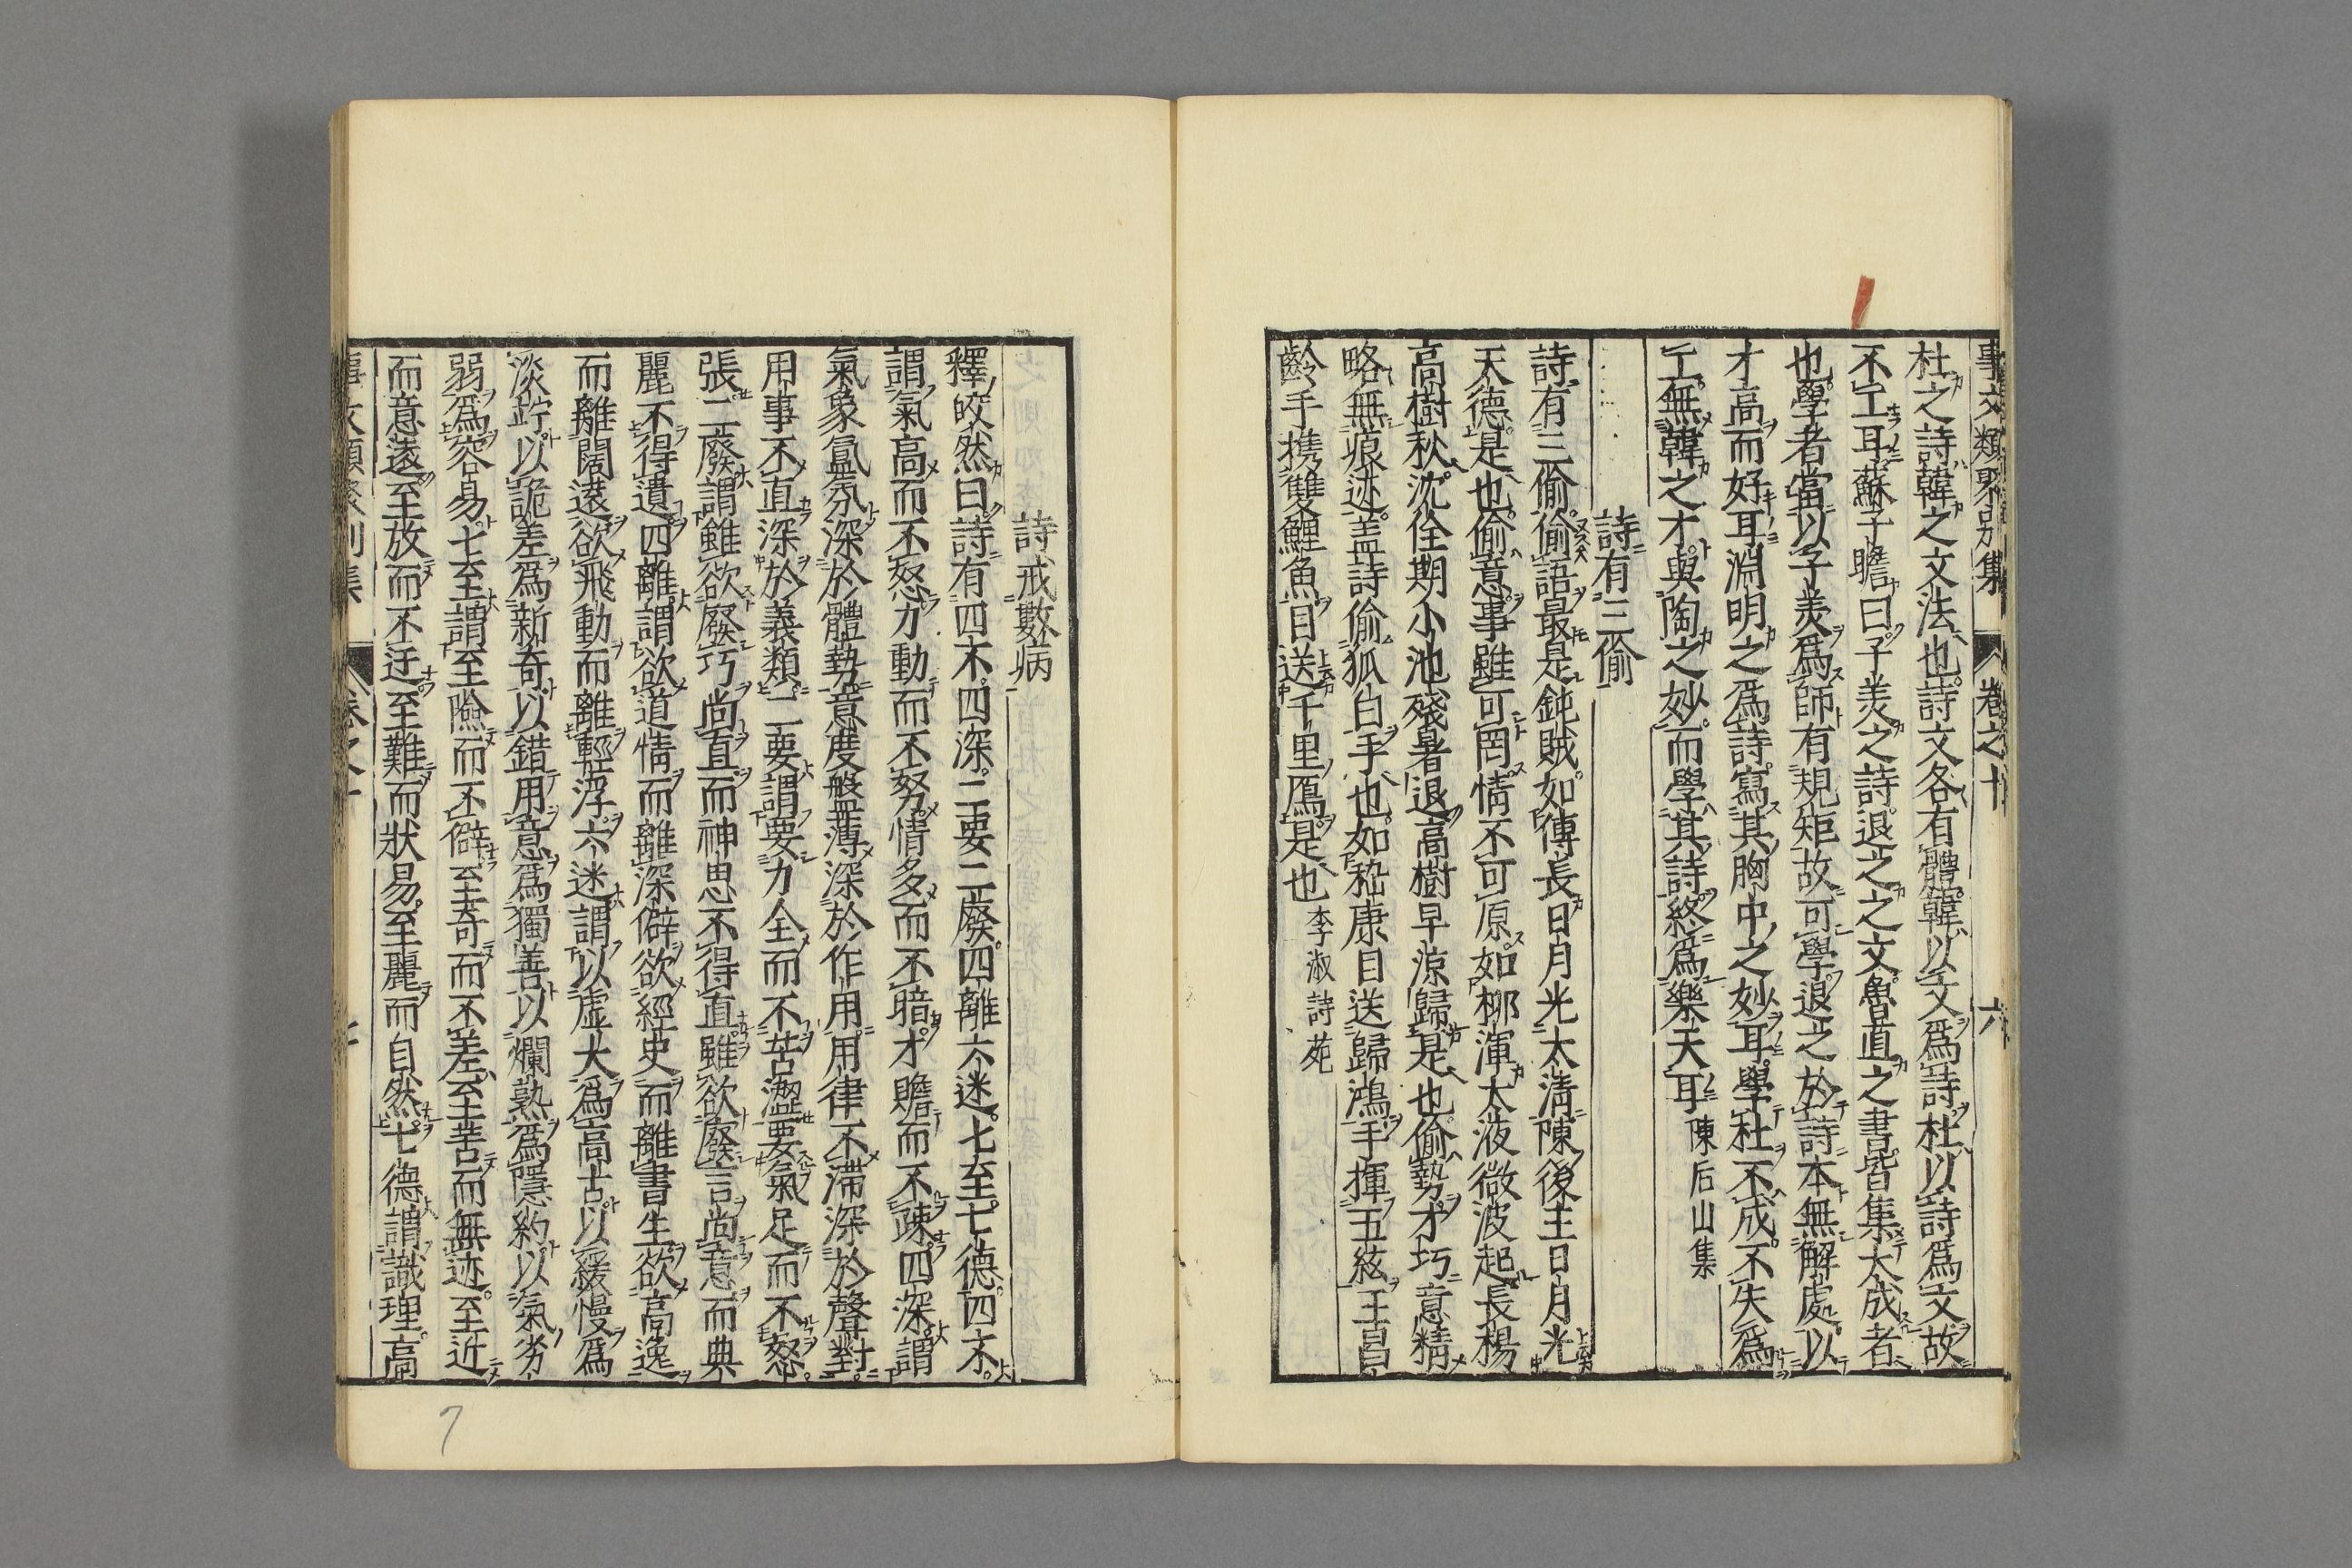 事文類聚別集 卷之十 六
杜之詩韓之文法也詩文各有體韓以文爲詩杜以詩爲文故
不工耳蘇子瞻曰子美之詩退之之文魯直之書皆集大成者
也學者當以子美爲師有規矩故可學退之於詩本無解處以
才高而好耳淵明之爲詩寫其胸中之妙耳學杜不成不失爲
工無韓之才與陶之妙而學其詩終爲樂天耳 陳后山集
詩有三偷
詩有三偷偷語最是鈍賊如傅長日月光太清陳後主日月光
天德是也偷意事雖可罔情不可原如柳渾太液微波起長楊
高樹秋沈佺期小池殘暑退高樹早涼歸是也偷勢才巧意精
略無痕迹盖詩偷狐白手也如嵇康目送歸鴻手揮五絃王昌
齡手携雙鯉魚目送千里鴈是也 李淑詩苑
詩戒數病
釋皎然曰詩有四不四深二要二廢四離六迷七至七德四不
謂氣高而不怒力動而不努情多而不暗才贍而不疎四深謂
氣象氳氛深於體勢意度盤薄深於作用用律不滞深於聲對
用事不直深於義類二要謂要力全而不苦澀要氣足而不怒
張二廢謂雖欲廢巧尚直而神思不得直雖欲廢言尚意而典
麗不得遺四離謂欲道情而離深僻欲經史而離書生欲高逸
而離闊遠欲飛動而離輕浮六迷謂以虛大爲高古以緩慢爲
淡竚以詭差爲新奇以錯用意爲獨善以爛熟爲隱約以氣劣
弱爲容易七至謂至險而不僻至奇而不差至苦而無迹至近
而意遠至放而不迂至難而狀易至麗而自然七德謂識理高
事文類聚別集 卷之十
7